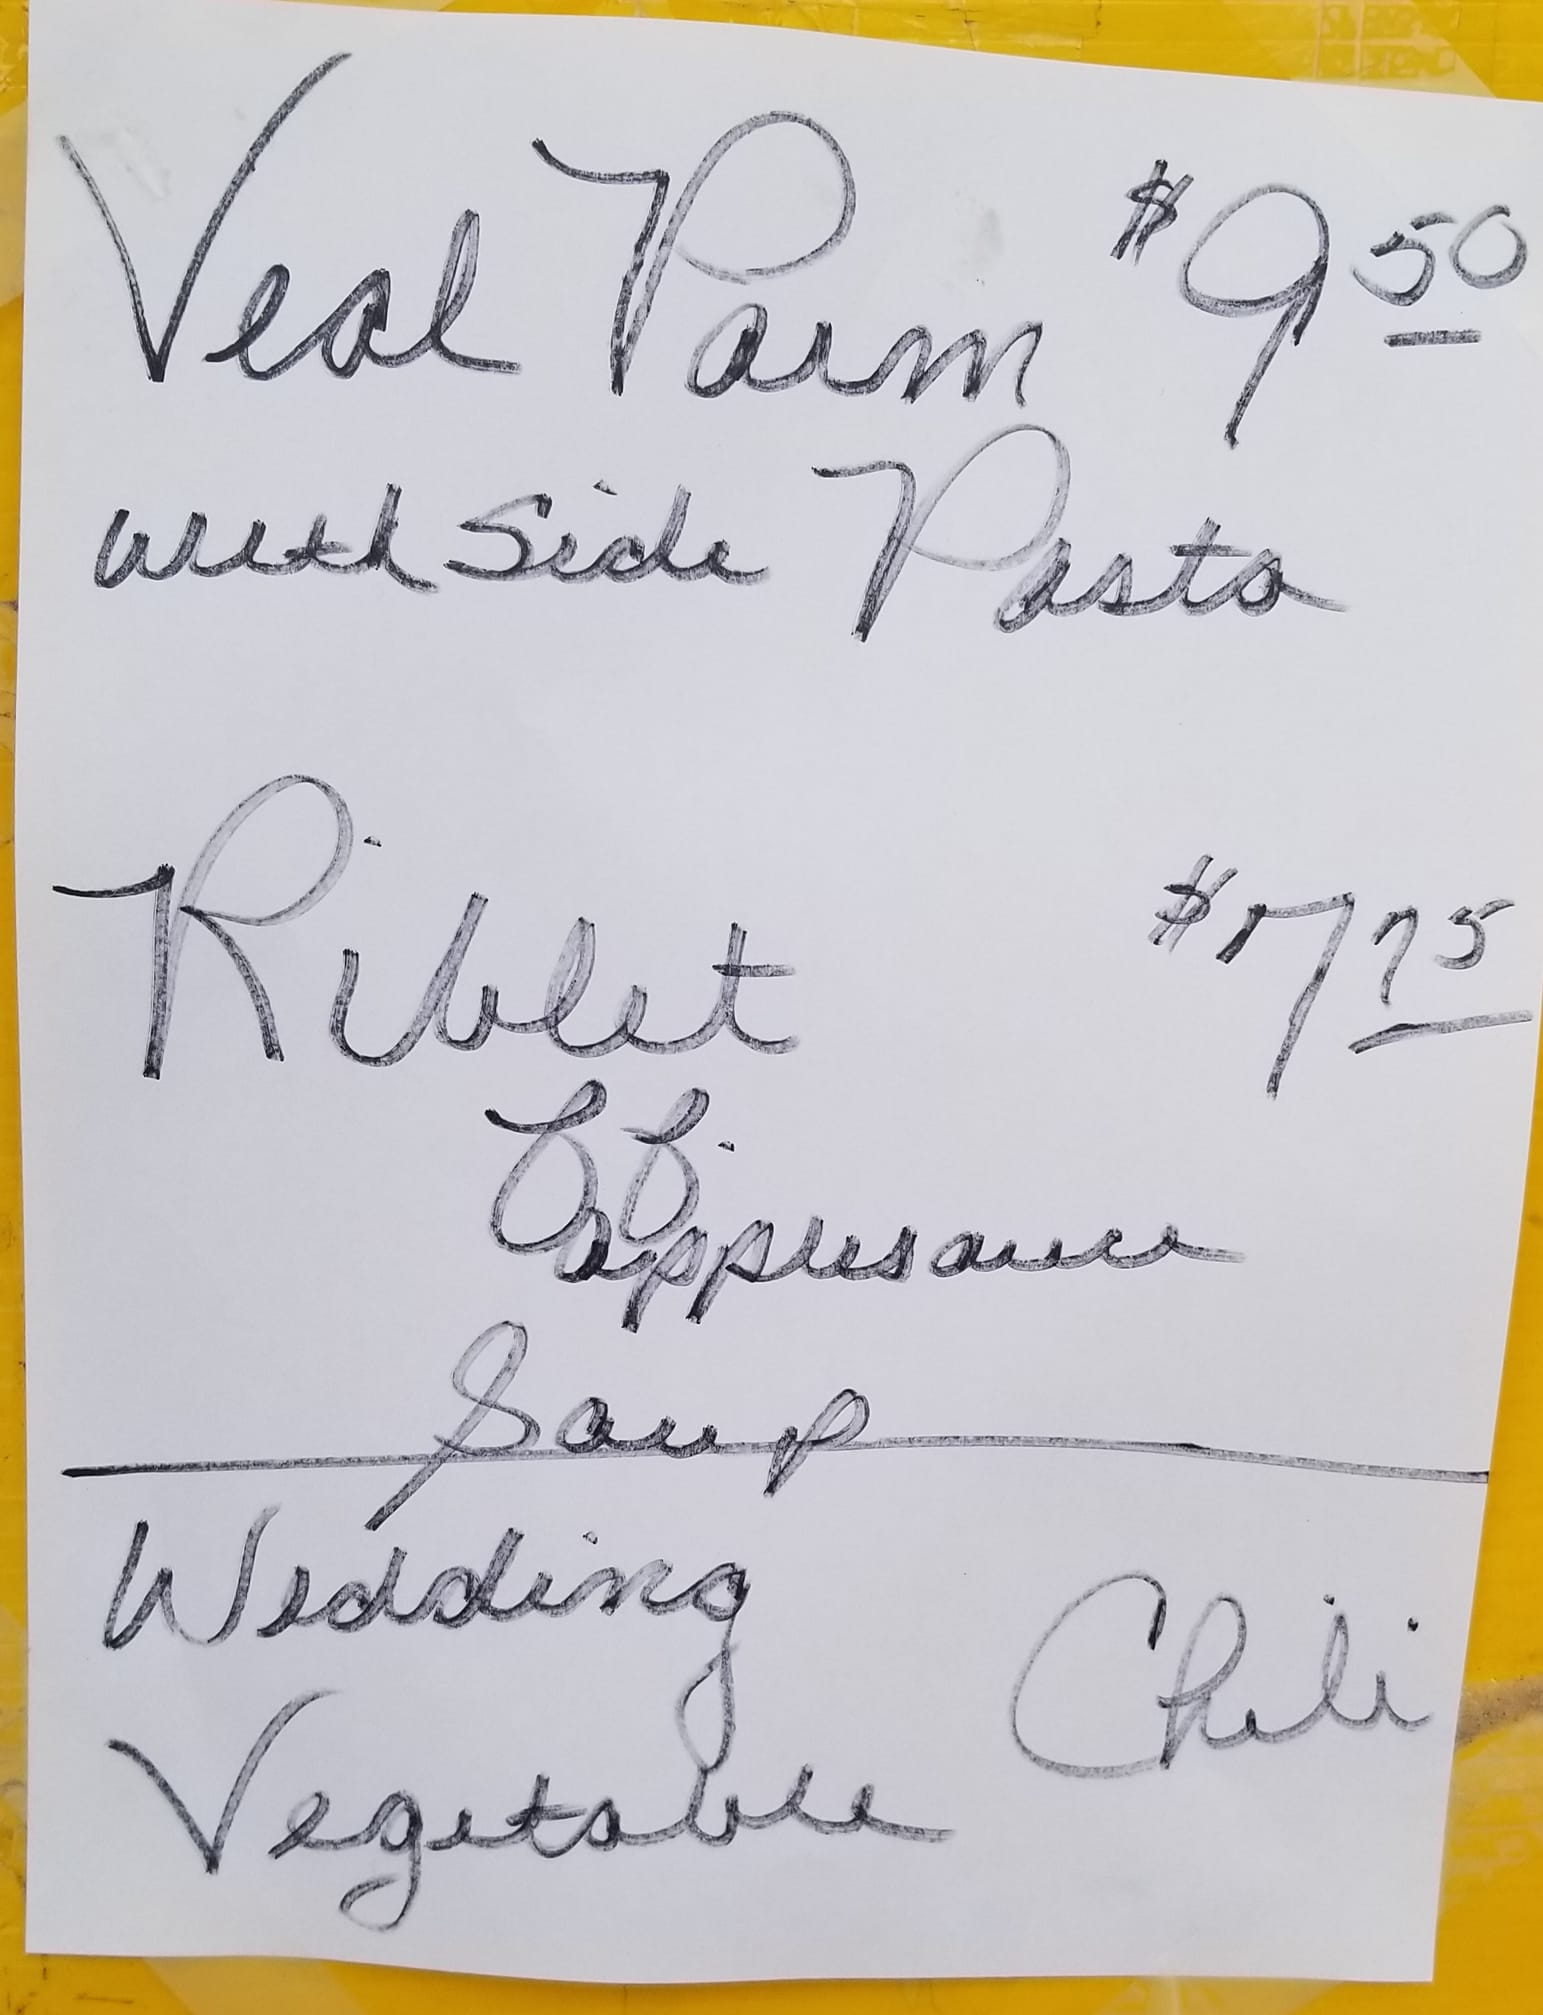 Veal Parm $9 50
with Side Pasta
Riblet $7 75
FF.
applesauce
Soup
Wedding
Chili
Vegetable